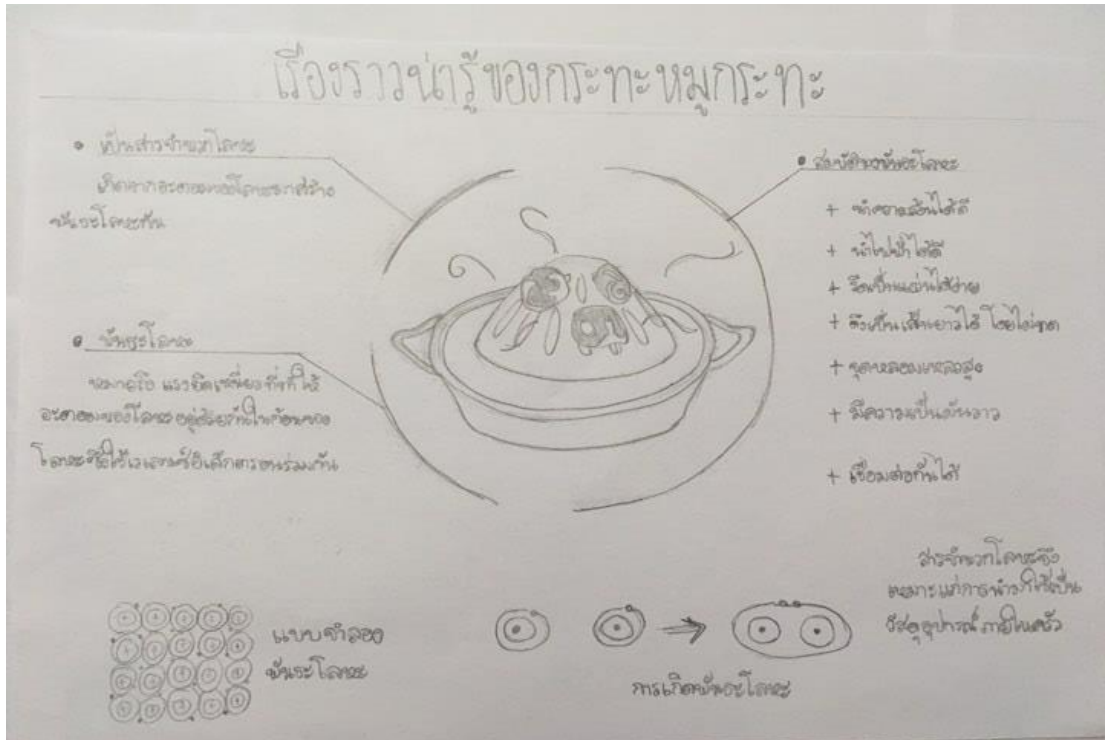 เรื่องราวน่ารู้ของกระทะหมูกระทะ
• เป็นสารจำพวกโลหะ
เกิดจากอะตอมของโลหะมาสร้าง
พันธะโลหะกัน
• พันธะโลหะ
หมายถึง แรงยึดเหนี่ยวที่ทำให้
อะตอมของโลหะอยู่ด้วยกันในก้อนของ
โลหะซึ่งใช้เวเลนซ์อิเล็กตรอนร่วมกัน
• สมบัติของพันธะโลหะ
+ นำความร้อนได้ดี
+ นำไฟฟ้าได้ดี
+ รีดเป็นแผ่นได้ง่าย
+ ดึงเป็นเส้นยาวได้ โดยไม่ขาด
+ จุดหลอมเหลวสูง
+ มีความเป็นมันวาว
+ เชื่อมต่อกันได้
สารจำพวกโลหะจึง
เหมาะแก่การนำมาใช้เป็น
วัสดุอุปกรณ์ภายในครัว
แบบจำลอง
พันธะโลหะ
การเกิดพันธะโลหะ